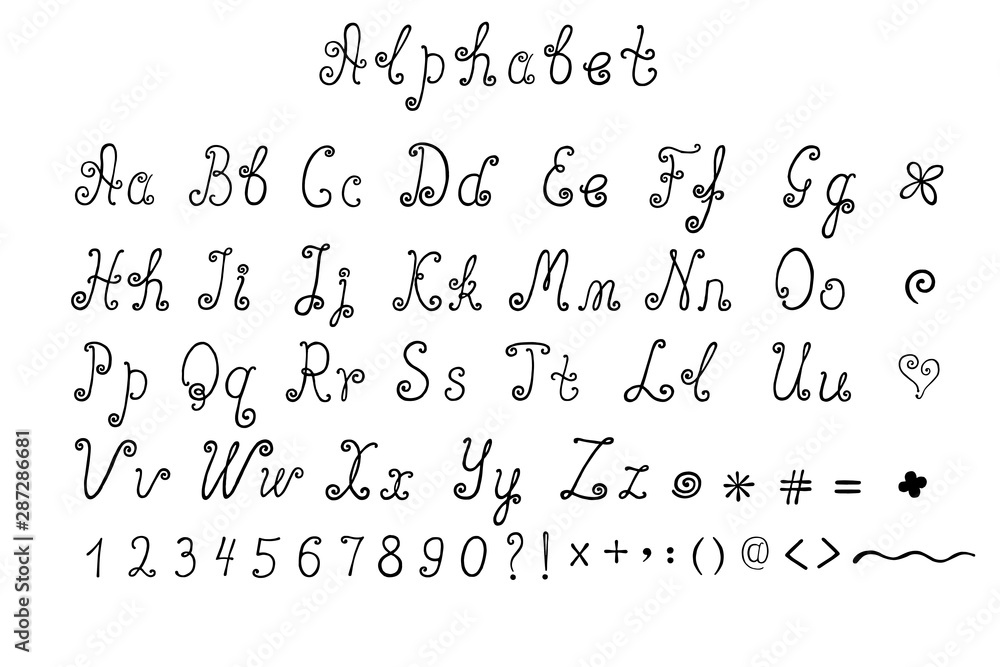 Alphabet
Aa Bb Cc Dd Ee Ff Gg
Hh Ii Jj Kk Mm Nn Oo
Pp Qq Rr Ss Tt Ll Uu
Vv Ww Xx Yy Zz * # =
1 2 3 4 5 6 7 8 9 0 ? ! x + , : ( ) @ < >
Adobe Stock | #287286681